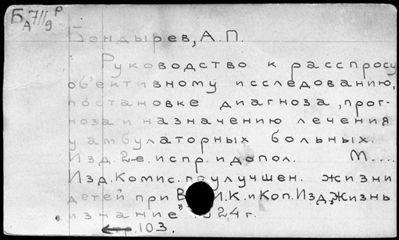 Б 7/II р
А 9
Бондырев, А.П.
Руководство к расспросу
объективному исследованию,
постановке диагноза, прог-
ноза и назначению лечения
у амбулаторных больных.
Изд. 2-е. испр. и допол. М....
Изд. Комис. по улучшен. жизни
детей при В И.К. и Коп. Изд. „Жизнь
и знание" 1924 г.
стр. 103.